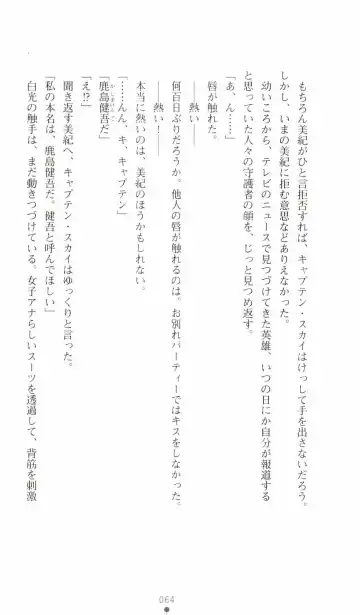 もちろん美紀がひと言拒否すれば、キャプテン・スカイはけっして手を出さないだろう。
しかし、いまの美紀に拒む意思などありえなかった。
幼いころから、テレビのニュースで見つづけてきた英雄、いつの日にか自分が報道する
と思っていた人々の守護者の顔を、じっと見つめ返す。
「あ、ん……」
唇が触れた。
――熱い
――熱い！
何百日ぶりだろうか。他人の唇が触れるのは。お別れパーティーではキスをしなかった。
本当に熱いのは、美紀のほうかもしれない。
「……んん、キ、キャプテン」
「鹿島健吾だ」
かしまけんご
「え!?」
聞き返す美紀へ、キャプテン・スカイはゆっくりと言った。
「私の本名は、鹿島健吾だ。健吾と呼んでほしい」
白光の触手は、まだ動きつづけている。女子アナらしいスーツを透過して、背筋を刺激
064